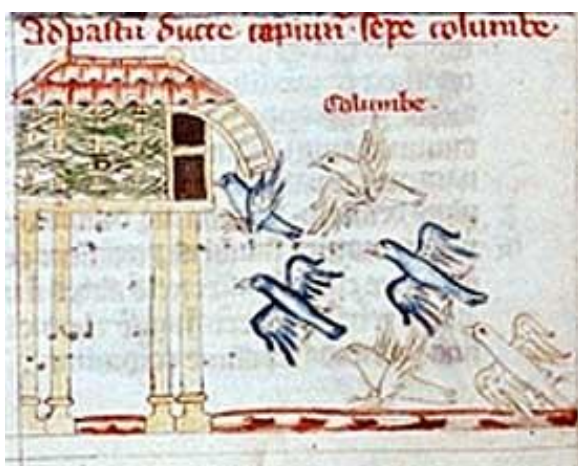 Ad pastu ducte capiunt· sepe columbe·
Columbe·